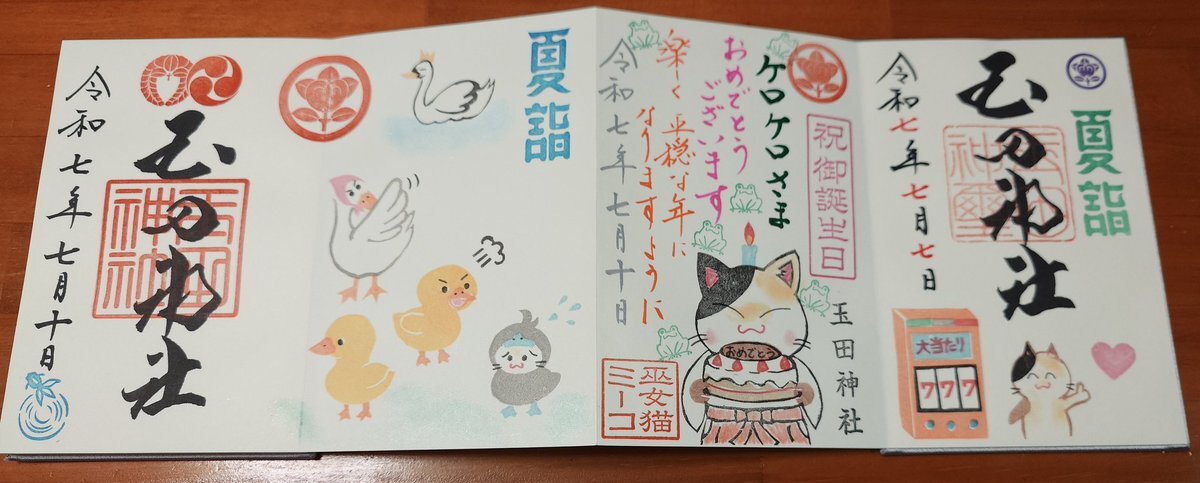 夏詣
玉田神社
令和七年七月七日
大当たり
777
祝御誕生日
ケロケロさま
おめでとう
ございます
楽しく平穏な年に
なりますように
令和七年七月十日
玉田神社
おめでとう
巫女猫
ミーコ
夏詣
玉田神社
令和七年七月十日